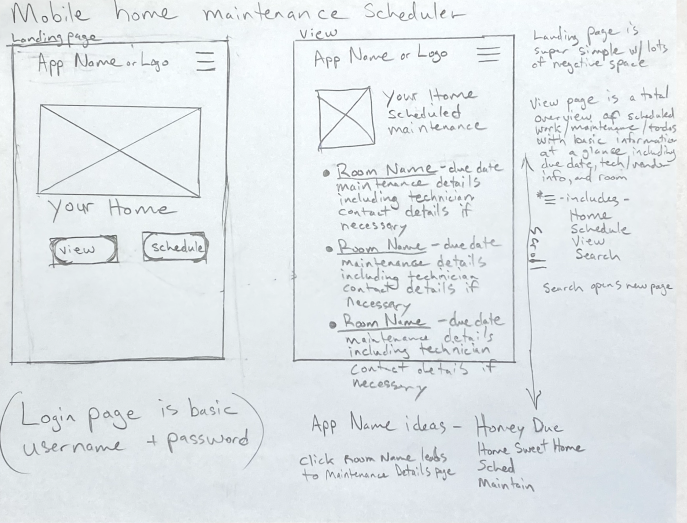 Mobile home maintenance Scheduler
Landing page
App Name or Logo
Your Home
View
Schedule
View
App Name or Logo
Your Home
Scheduled
maintenance
Room Name - due date
maintenance details
including technician
contact details if
necessary
Room Name - due date
maintenance details
including technician
contact details if
necessary
Room Name - due date
maintenance details
including technician
contact details if
necessary
Scroll
Landing page is
super simple w/ lots
of negative space
View page is a total
overview of scheduled
work/maintenance/todos
with basic information
at a glance including
due date, tech/vendor
info, and room
* - includes -
Home
Schedule
View
Search
Search opens new page
(Login page is basic
username + password)
App Name ideas - Honey Due
Home Sweet Home
Sched
Maintain
Click Room Name leads
to Maintenance Details page